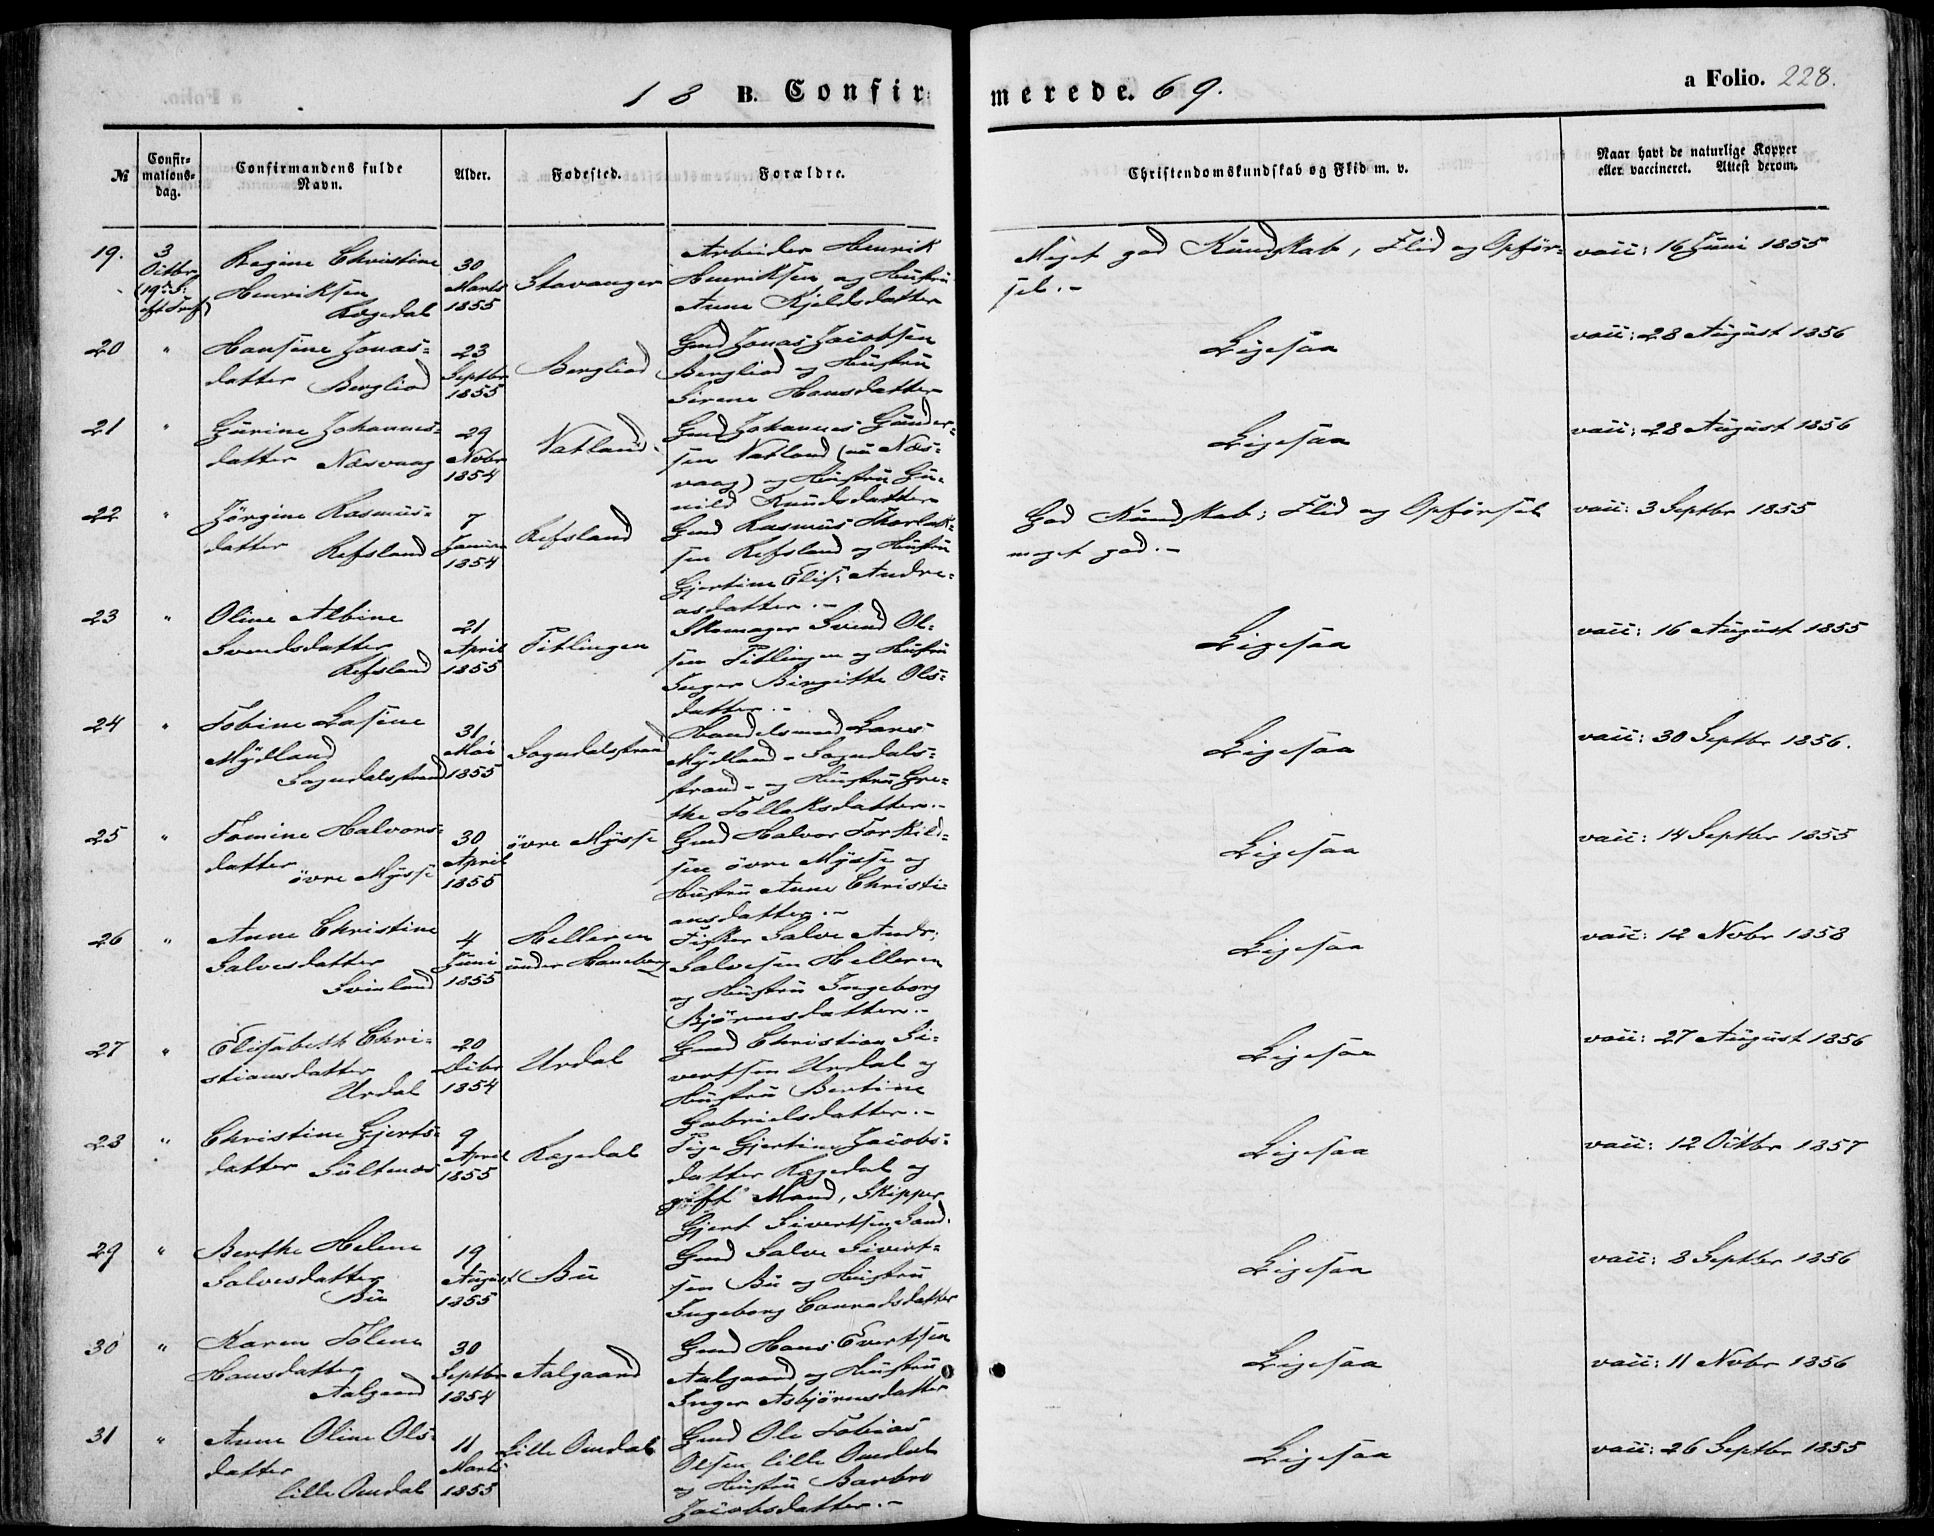 18 B. Confirmerede. 69.
a Folio. 228.
№
Confirmations-dag.
Confirmandens fulde Navn.
Alder.
Fødested.
Forældre.
Christendomskundskab og Flid m. v.
Naar havt de naturlige Kopper eller vaccineret. Attest derom.
19.
3 Octbr (19de S: eft Tref)
Regine Christine
Henriksen
Regedal
30
Marts
1855
Stavanger
Arbeider Henrik
Henriksen og Hustru
Anne Kjeldsdatter
Meget god Kundskab, Flid og Opfør-
sel.-
vacc: 16 Juni 1855
20
"
Hansine Jonas-
datter Bergliod
23
Septbr
1855
Bergliod
Gmd Jonas Jacobsen
Bergliod og Hustru
Sirene Hansdatter
Ligesaa
vacc: 28 August 1856
21
"
Gurine Johannes-
datter Næsvaag
29
Novbr
1854
Vatland
Gmd Johannes Gunder-
sen Vatland (nu Næs-
vaag) og Hustru Gu-
nild Knudsdatter
Ligesaa
vacc: 28 August 1856
22
"
Jørgine Rasmus-
datter Refsland
7
Januar
1854
Refsland
Gmd Rasmus Thorlak-
sen Refsland og Hustru
Gjertine Elis: Andre-
asdatter.-
God Kundskab; Flid og Opførsel
meget god.-
vacc: 3 Septbr 1855
23
"
Oline Albine
Svendsdatter
Refsland
21
April
1855
Titlingen
Skomager Svend Ol-
sen Titlingen og Hustru
Inger Birgitte Ols-
datter.-
Ligesaa
vacc: 16 August 1855
24
"
Tobine Lasine
Mydland
Sogndalsstrand
31
Mai
1855
Sogndalsstrand
Handelsmand Lars
Mydland - Sogndals-
strand - og Hustru Gre-
the Tollaksdatter.-
Ligesaa
vacc: 30 Septbr 1856.
25
"
Tomine Halvors-
datter
øvre Mysse
30
April
1855
øvre Mysse
Gmd Halvor Torkild-
sen øvre Mysse og
Hustru Anne Christi-
ansdatter.-
Ligesaa
vacc: 14 Septbr 1855
26
"
Anne Christine
Salvesdatter
Svinland
4
Juni
1855
Helleren
under Haneberg
Fisker Salve Andr:
Salvesen Helleren
og Hustru Ingeborg
Bjørnsdatter.-
Ligesaa
vacc: 12 Novbr 1858
27
"
Elisabeth Chri-
stiansdatter
Urdal
20
Decbr
1854
Urdal
Gmd Christian Si-
vertsen Urdal og
Hustru Bertine
Gabrielsdatter.-
Ligesaa
vacc: 27 August 1856
28
"
Christine Gjerts-
datter Sultenæs
9
April
1855
Regedal
Pige Gjertine Jacobs-
datter Regedal og
gift Mand, Skipper
Gjert Sivertsen Sand.
Ligesaa
vacc: 12 Octbr 1857
29
"
Berthe Helene
Salvesdatter
Bu
19
August
1855
Bu
Gmd Salve Sivert-
sen Bu og Hustru
Ingeborg Conradsdatter
Ligesaa
vacc: 8 Septbr 1856
30
"
Karen Tolene
Hansdatter
Aalgaard
30
Septbr
1854
Aalgaard
Gmd Hans Evertsen
Aalgaard og Hustru
Inger Asbjørnsdatter
Ligesaa
vacc: 11 Novbr 1856
31
"
Anne Oline Ols-
datter
lille Omdal
11
Marts
1855
Lille Omdal
Gmd Ole Tobias
Olsen lille Omdal
og Hustru Barbro
Jacobsdatter.-
Ligesaa
vacc: 26 Septbr 1855